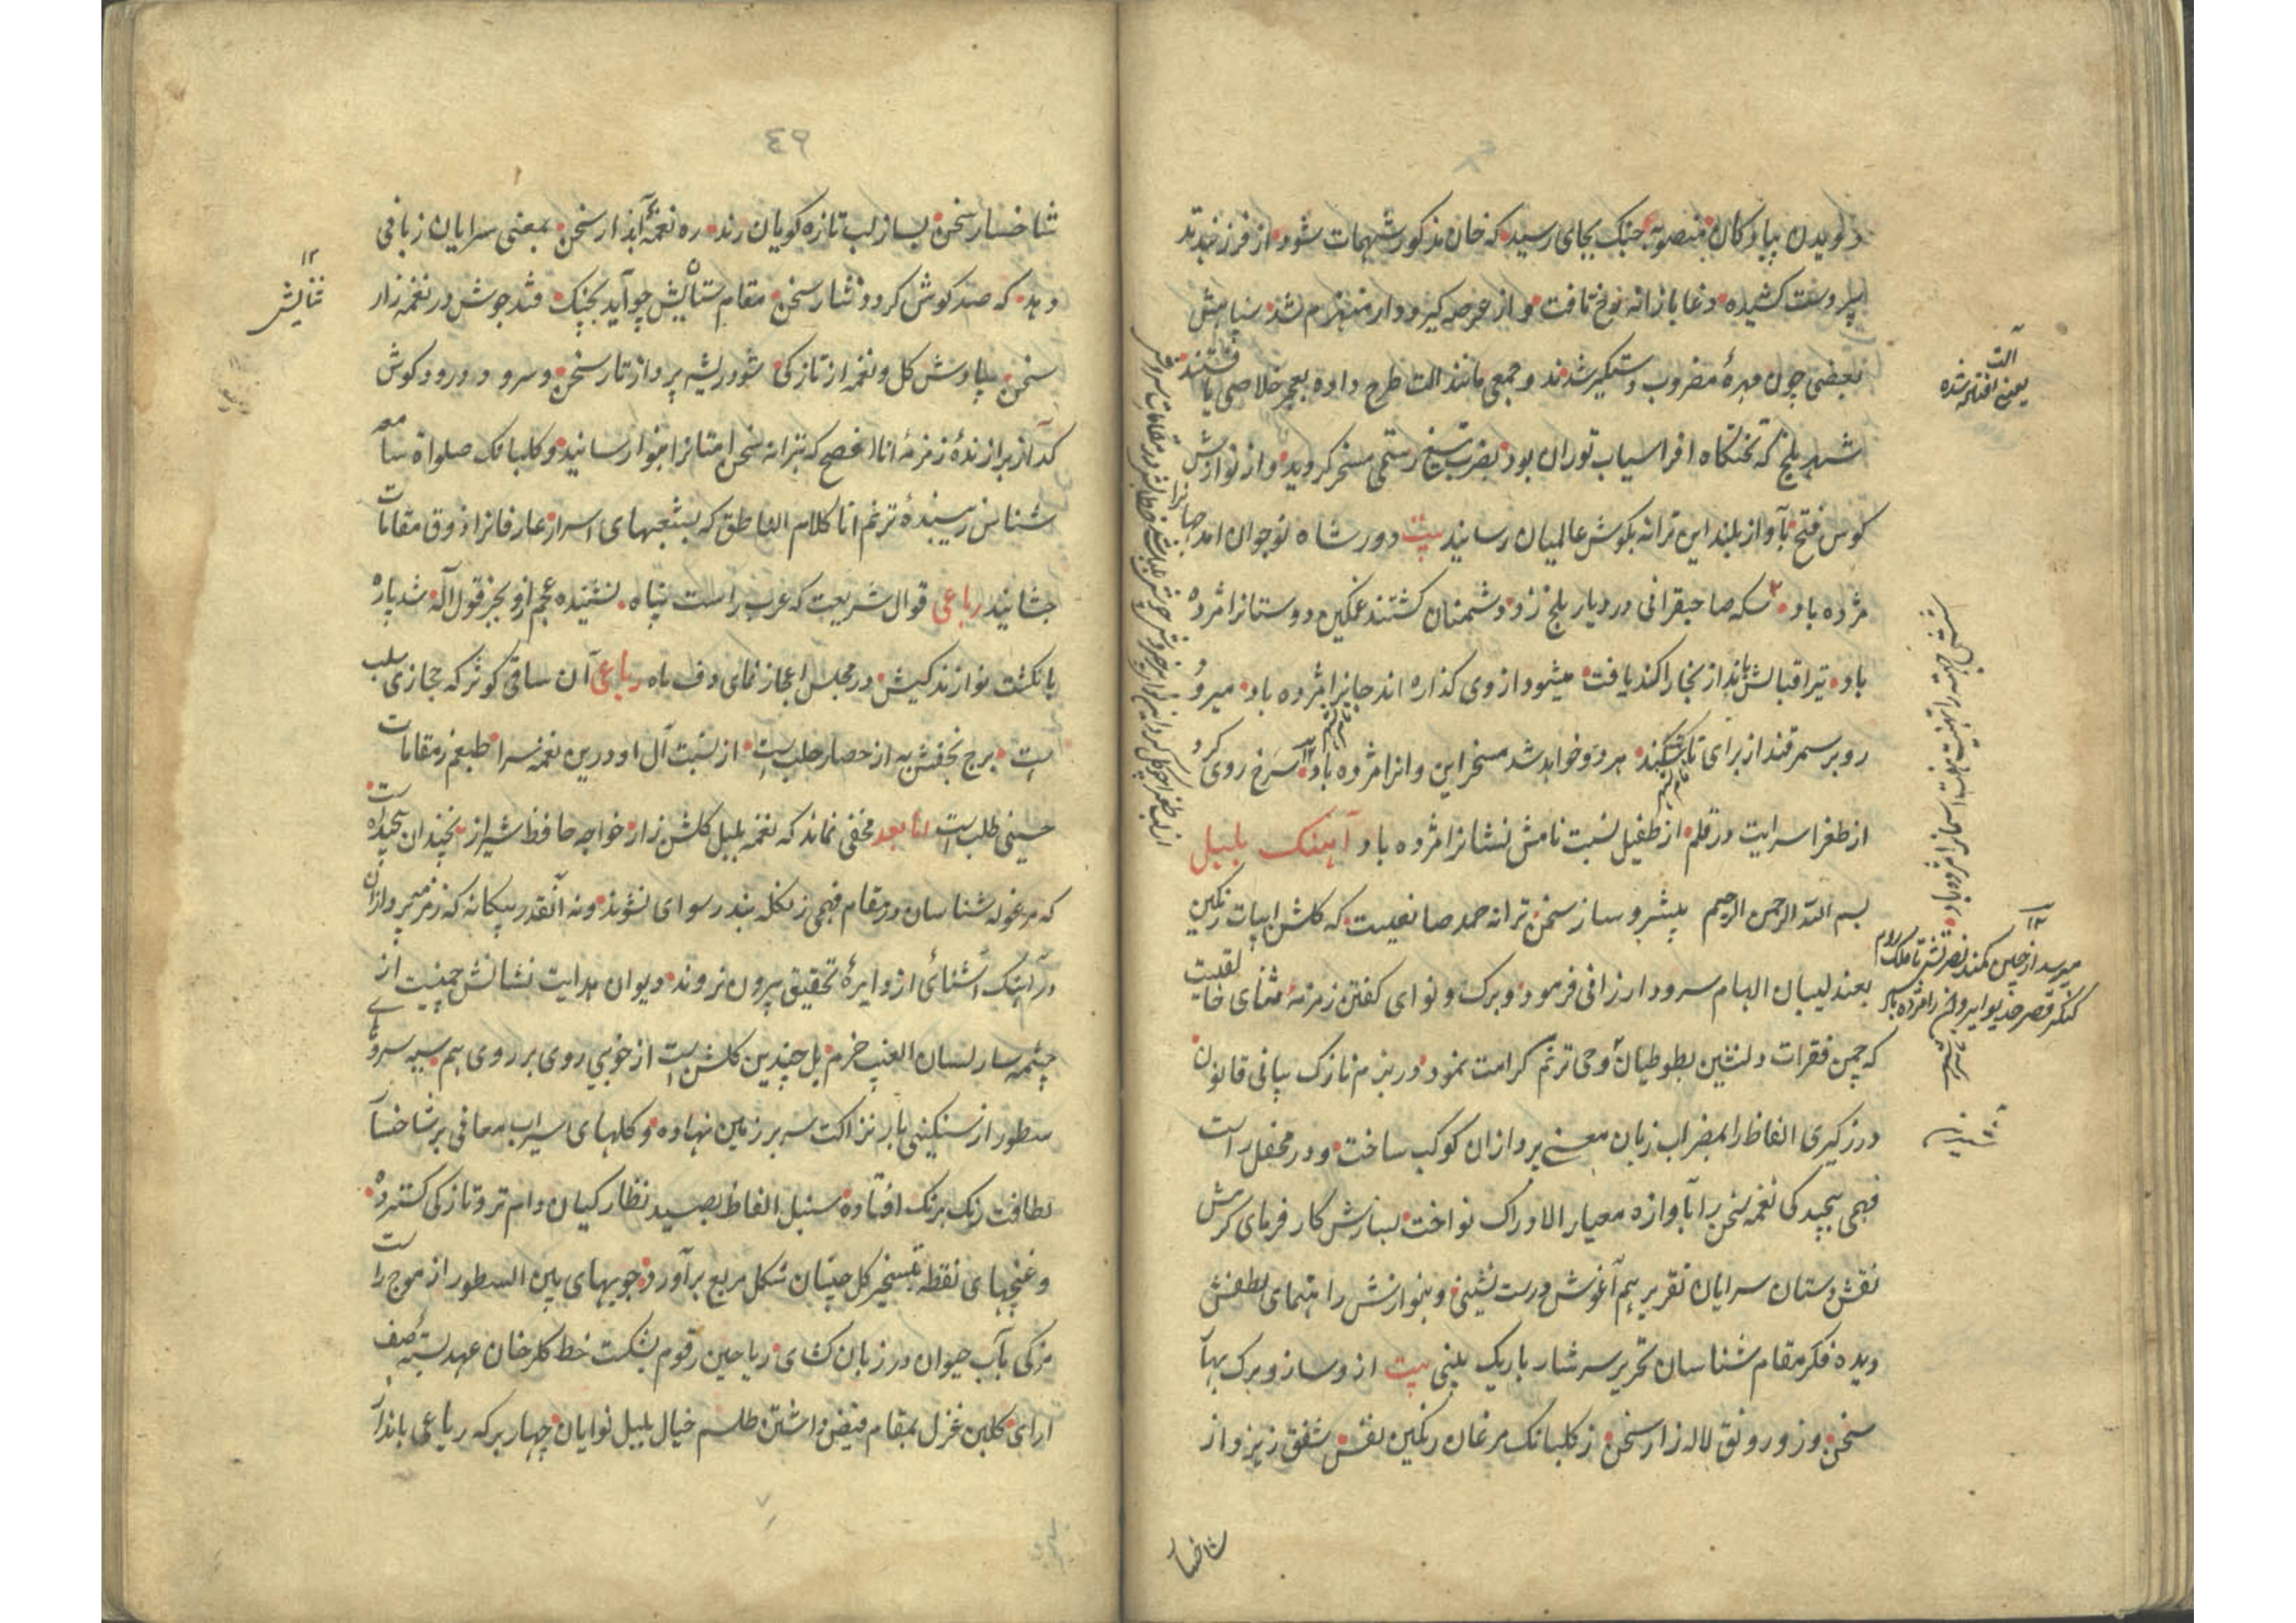 دویدن پیادگان منصوبهٔ جنک بجای رسید که خان مذکور شهمات شود از فرزندبند
پر دست کشیده دغا بازانه نوخ تافت و از عرصه کیرودار منهزم شد سپاهش
بعضی چون مهرهٔ مضروب دستکیر شدند و جمعی مانند الت طرح داده بعجز خلاصی یافتند
شهر بلخ که تختکاه افراسیاب توران بود بضرب تیغ رستمی مسخر کردید و از نوازش
کوس فتح بآواز بلند این ترانه بکوش عالمیان رسانید بیت دور شاه نوجوان امد جهانرا
مژده باد سکه صاحبقرانی در دیار بلخ زد دشمنان کشتند غمکین دوستانرا مژده
باد تیر اقبالش باندازبخارا کند یافت میشود از وی کذاره اندجانرا مژده باد میرود
رو بر سمرقند از برای تاشکند هر دو خواهد شد مسخر این و انرا مژده باد سرخ روی کرد
از طغرا سرایت در قلم از طفیل نسبت نامش نشانرا مژده باد آهنک بلبل
بسم الله الرحمن الرحیم پیشرو ساز سخن ترانه حمد صانعیست که کلشن ابیات رنکین
بعندلیبان الهام سرود ارزانی فرمود و برک و نوای کفتن زمزمهٔ ثنای خالقیست
که چمن فقرات دلنشین بطوطیان وحی ترنم کرامت نمود در بزم نازک بیانی قانون
درزکیری الفاظ را بمضراب زبان معنی پردازان کوک ساخت و در محفل راست
فهمی پیچیدکی نغمه سخن را بآوازه معیار الادراک نواخت بسازش کار فرمای کرمش
نقش دستان سرایان تقریر هم آغوش درست نشینی و بنوازش راهنمای لطفش
دیده فکر مقام شناسان تحریر سرشار باریک بینی بیت ازو ساز و برک بهار
سخن وزو رونق لاله زار سخن ز کلبانک مرغان رنکین نفس شفق ریزد از
شاخسار
الت
یعنی افتاده شده
شش جهت را تهنیت هفت اسمانرا مژده باد
میرسد از چین کمند نصرتش تا ملک روم
کنکر قصر خدیو ایروانرا مژده باد
٤٩
شاخسار سخن بساز لب تازه کویان رند ره نغمهٔ آبدار سخن بمعنی سرایان زبانی
دهد که صد کوش کردد نثار سخن مقام ستایش چو آید بچنک فتد جوش در نغمه زار
سخن بپاوش کل و نغمه از تازکی شود ریشه پرداز تار سخن و سرود درود کوش
کداز برازندهٔ زمزمهٔ انا افصح که بترانه سخن امتانرا بنوا رسانید و کلبانک صلواة سامعه
شناس زیبندهٔ ترنم انا کلام الناطق که بشعبهای اسرار عارفانرا ذوق مقامات
چشانید رباعی قوال شریعت که عرب راست پناه نشنیده عجم ازو بجز قول اله شد پاره
بانکشت نوازندکیش در مجلس اعجاز نمای دف ماه رباعی آن ساقی کوثر که حجازی سلب
است برج نجفش به از حصار حلب است از نسبت آل او درین نغمه سرا طبعم ز مقامات
حسینی طلب است اما بعد مخفی نماند که نغمه بلبل کلشن زار خواجه حافظ شیراز نچندان پیچیده است
که مرغوله شناسان در مقام فهمی زنکله بند رسوای نشوند و نه آنقدر بیکانه که زمزمه پردازان
در آهنک آشنائی از دایرهٔ تحقیق بیرون نروند دیوان هدایت نشانش چمنیست از
چشمه سار لسان الغیب خرم بل چندین کلشن است از خوبی روی بر روی هم سیه سروهای
سطور از سنکینی بار نزاکت سر بر زمین نهاده و کلهای سیراب معانی بر شاخسار
لطافت رنک برنک افتاده سنبل الفاظ بصید نظارکیان دام تر و تازکی کسترده
و غنچهای نقطه بتسخیر کل چینان شکل مربع برآورده جویهای بین السطور از موج راست
مزکی بآب حیوان در زبان کشای ریاحین رقوم بشکست خط کلرخان عهد بسته صف
ارای کلبن غزل بمقام فیض داشتن طلسم خیال بلبل نوایان چهار برکه رباعی بانداز
۱۲
ثنایش